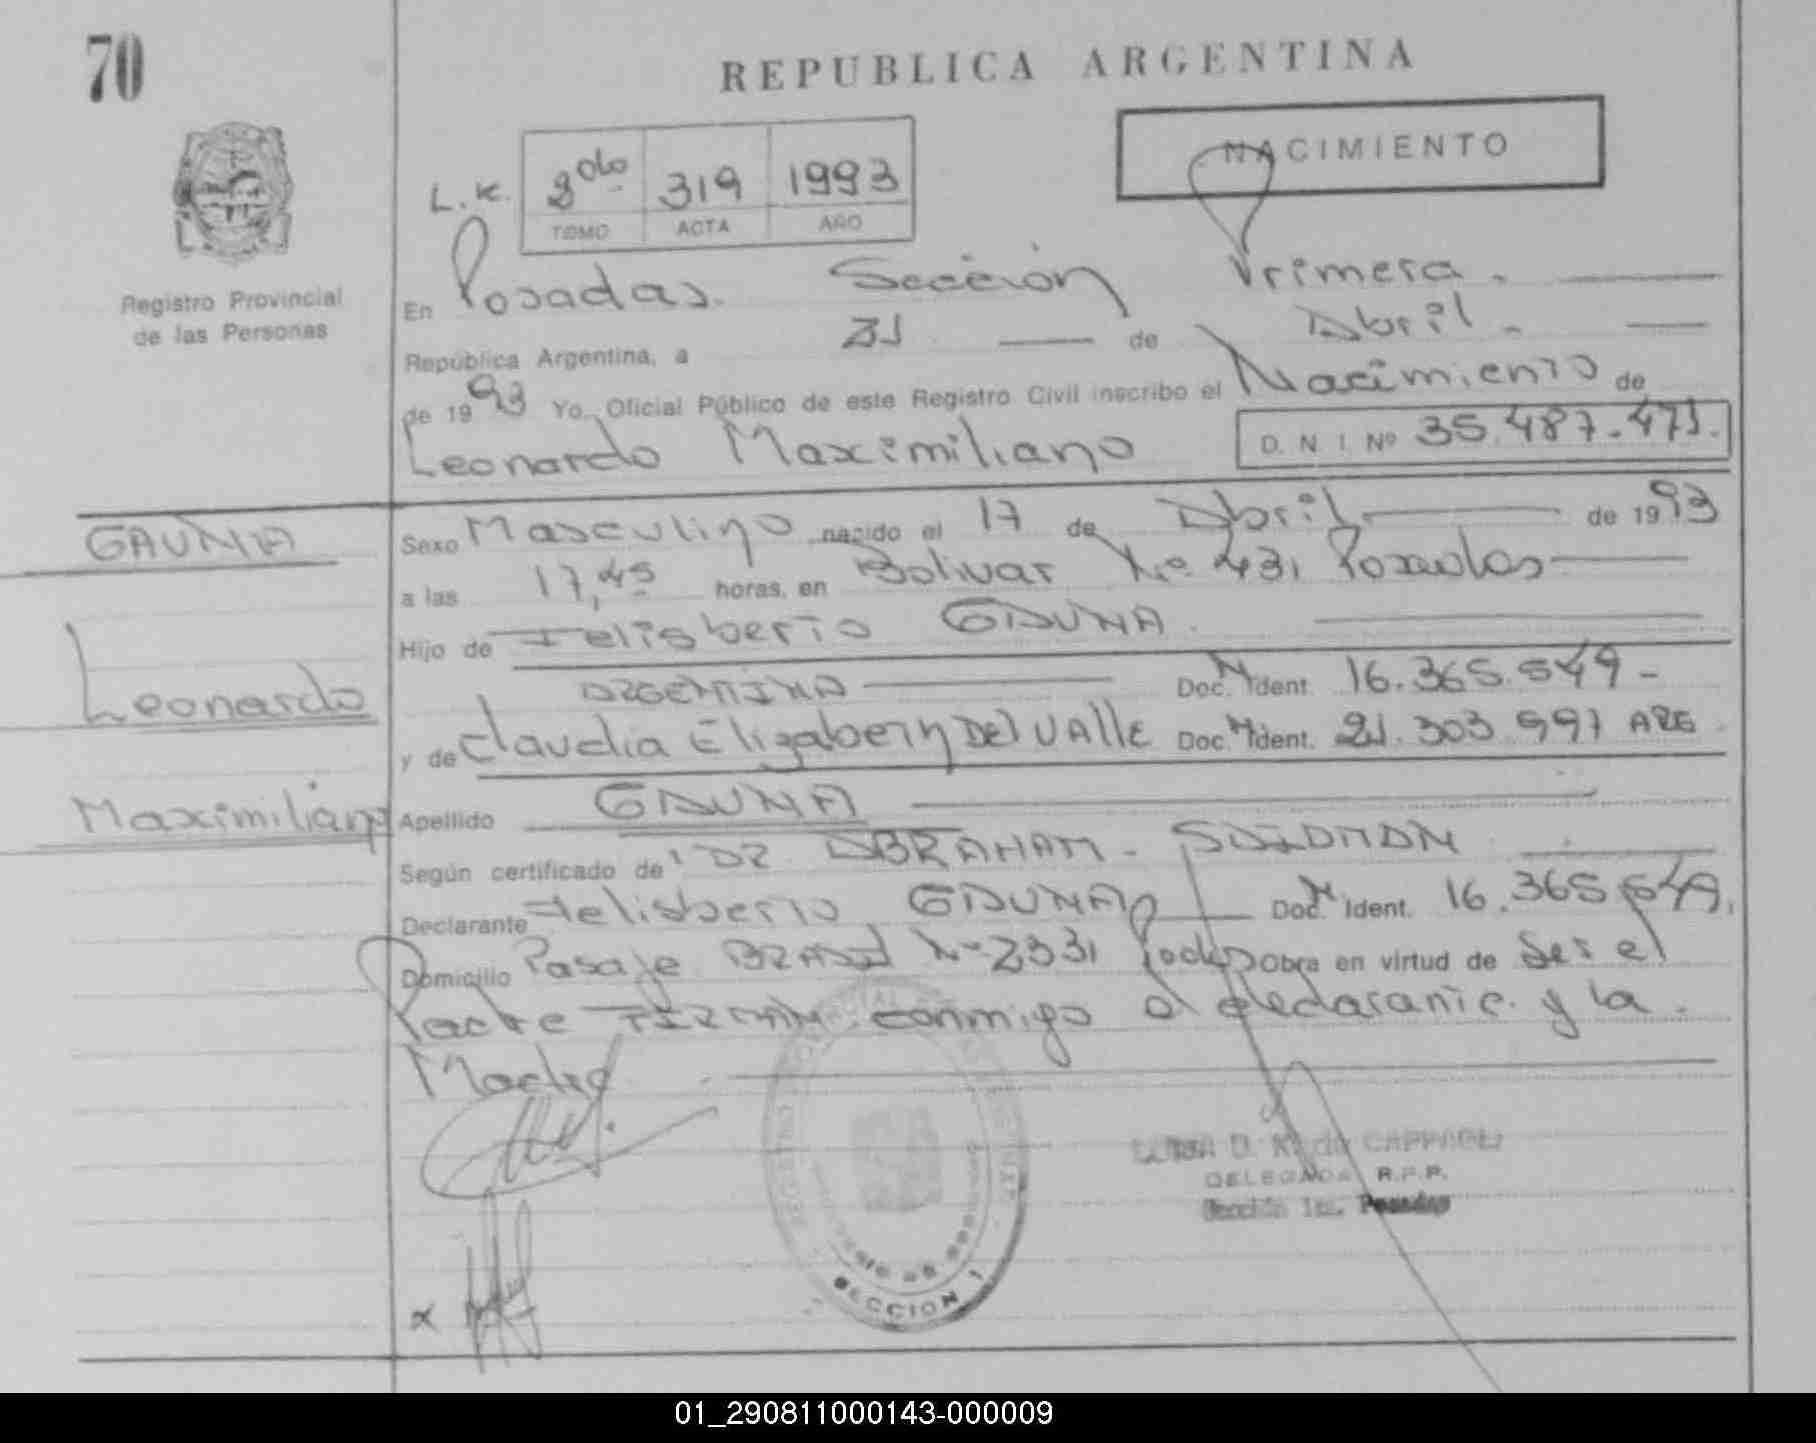 70
REPUBLICA ARGENTINA
NACIMIENTO
L.K. 2do 319 1993
TOMO ACTA AÑO
Registro Provincial
de las Personas
En Posadas. Sección Primera.
República Argentina, a 21 de Abril.
de 1993 Yo, Oficial Público de este Registro Civil inscribo el Nacimiento de
Leonardo Maximiliano D. N. I. Nº 35.487.471.
GAUNA
Sexo Masculino nacido el 17 de Abril de 1993
a las 17,45 horas, en Bolivar Nº 431 Posadas
Hijo de Felisberto GAUNA.
Leonardo
ARGENTINA Doc. N Ident. 16.365.549
y de Claudia Elizabeth Del VAllE Doc. N Ident. 21.303.997 ARG.
Maximiliano
Apellido GAUNA
Según certificado de: DR ABRAHAM - SOLOMON
Declarante Felisberto GAUNA Doc. N Ident. 16.365.549.
Domicilio Pasaje BRASIL Nº 2331 Obra en virtud de ser el
Padre FIRMAN conmigo el declarante y la
Madre
CAPPAGLI
DELEGADA R.P.P.
Sección 1ra. Posadas
SECCION 1
01_290811000143-000009